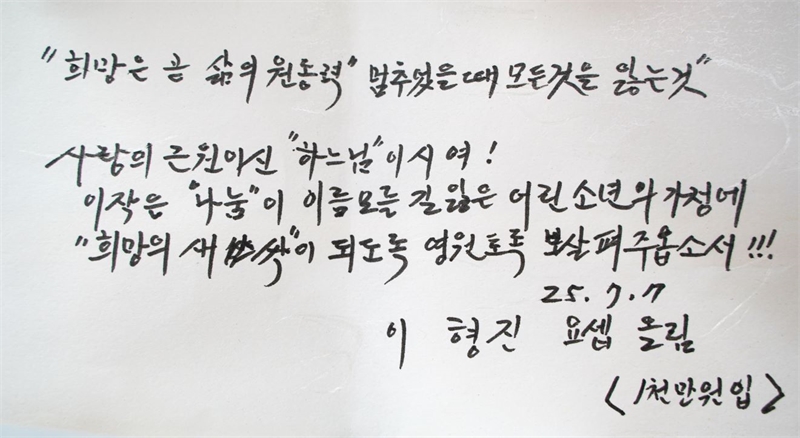 "희망은 곧 삶의 원동력" 멈추었을때 모든것을 잃는것"
사랑의 근원이신 "하느님"이시여!
이작은 "나눔"이 이름모를 길잃은 어린소년의 가정에
"희망의 새싹"이 되도록 영원토록 보살펴주옵소서!!!
25. 7. 7
이 형진 요셉 올림
<1천만원입>